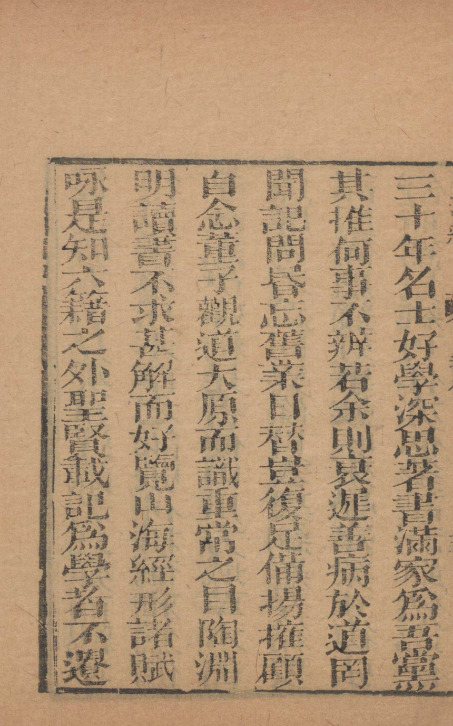 三十年名士好學深思著書滿家爲吾黨
其推何事不辨若余則衰遲善病於道罔
聞記問昏忘舊業日替豈復足備揚搉顧
自念董子觀道大原而識重常之目陶淵
明讀書不求甚解而好覽山海經形諸賦
咏是知六籍之外聖賢試記爲學者不遺